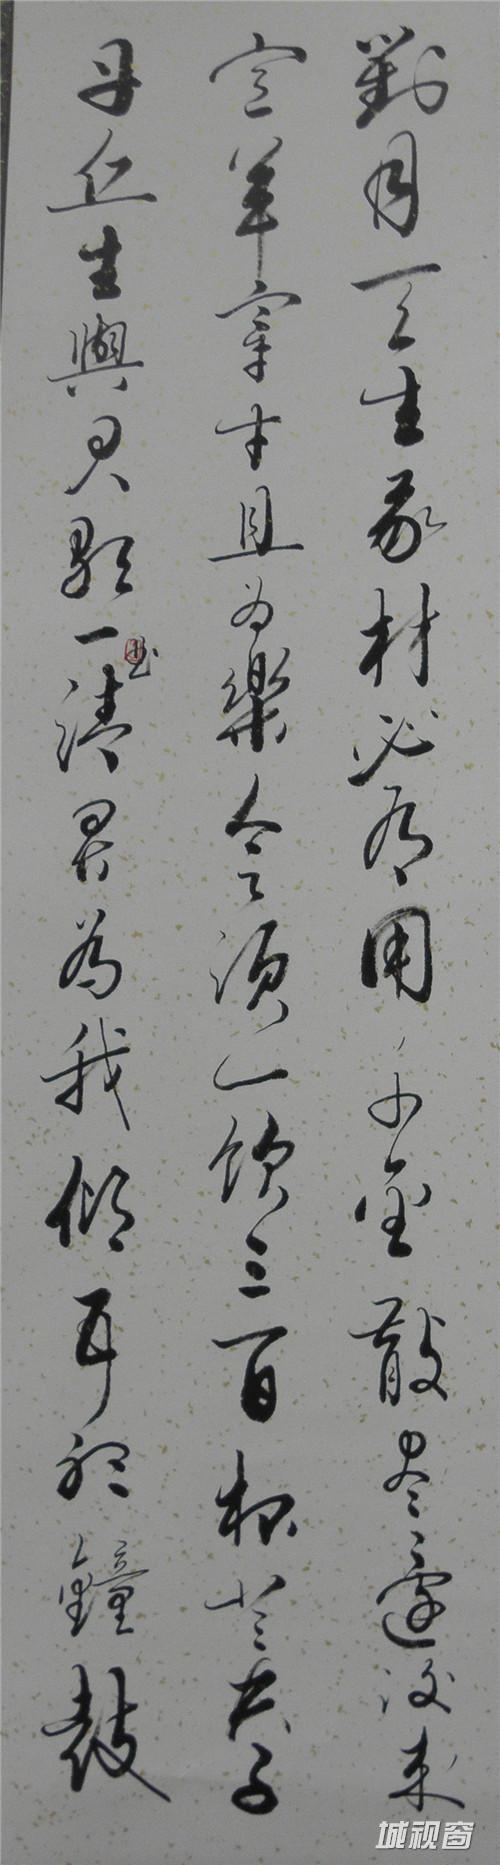 對月天生我材必有用千金散盡還復来
烹羊宰牛且为樂会須一飲三百杯岑夫子
丹丘生與君歌一曲請君為我傾耳聽鐘鼓
城视窗